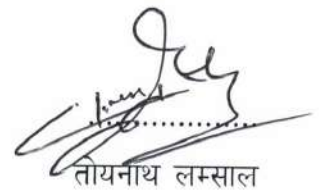 तोयनाथ लम्साल